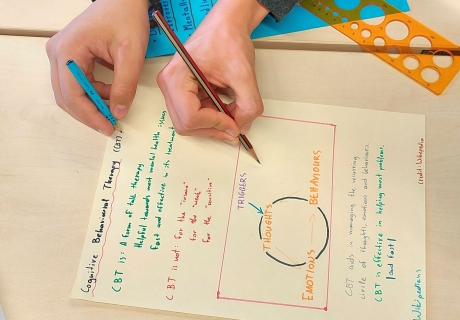 Cognitive Behavioral Therapy (CBT).
CBT is: A form of talk therapy
Helpful towards most mental health issues
Fast and effective in its treatment
CBT is not: For the "insane"
For the "weak"
For the "sensitive"
TRIGGERS
THOUGHTS
BEHAVIOURS
EMOTIONS
CBT aids in managing the recurring
circle of thoughts, emotions and behaviours.
CBT is effective in helping most problems,
and fast!
Credit: Wikipedia
Wikipedians